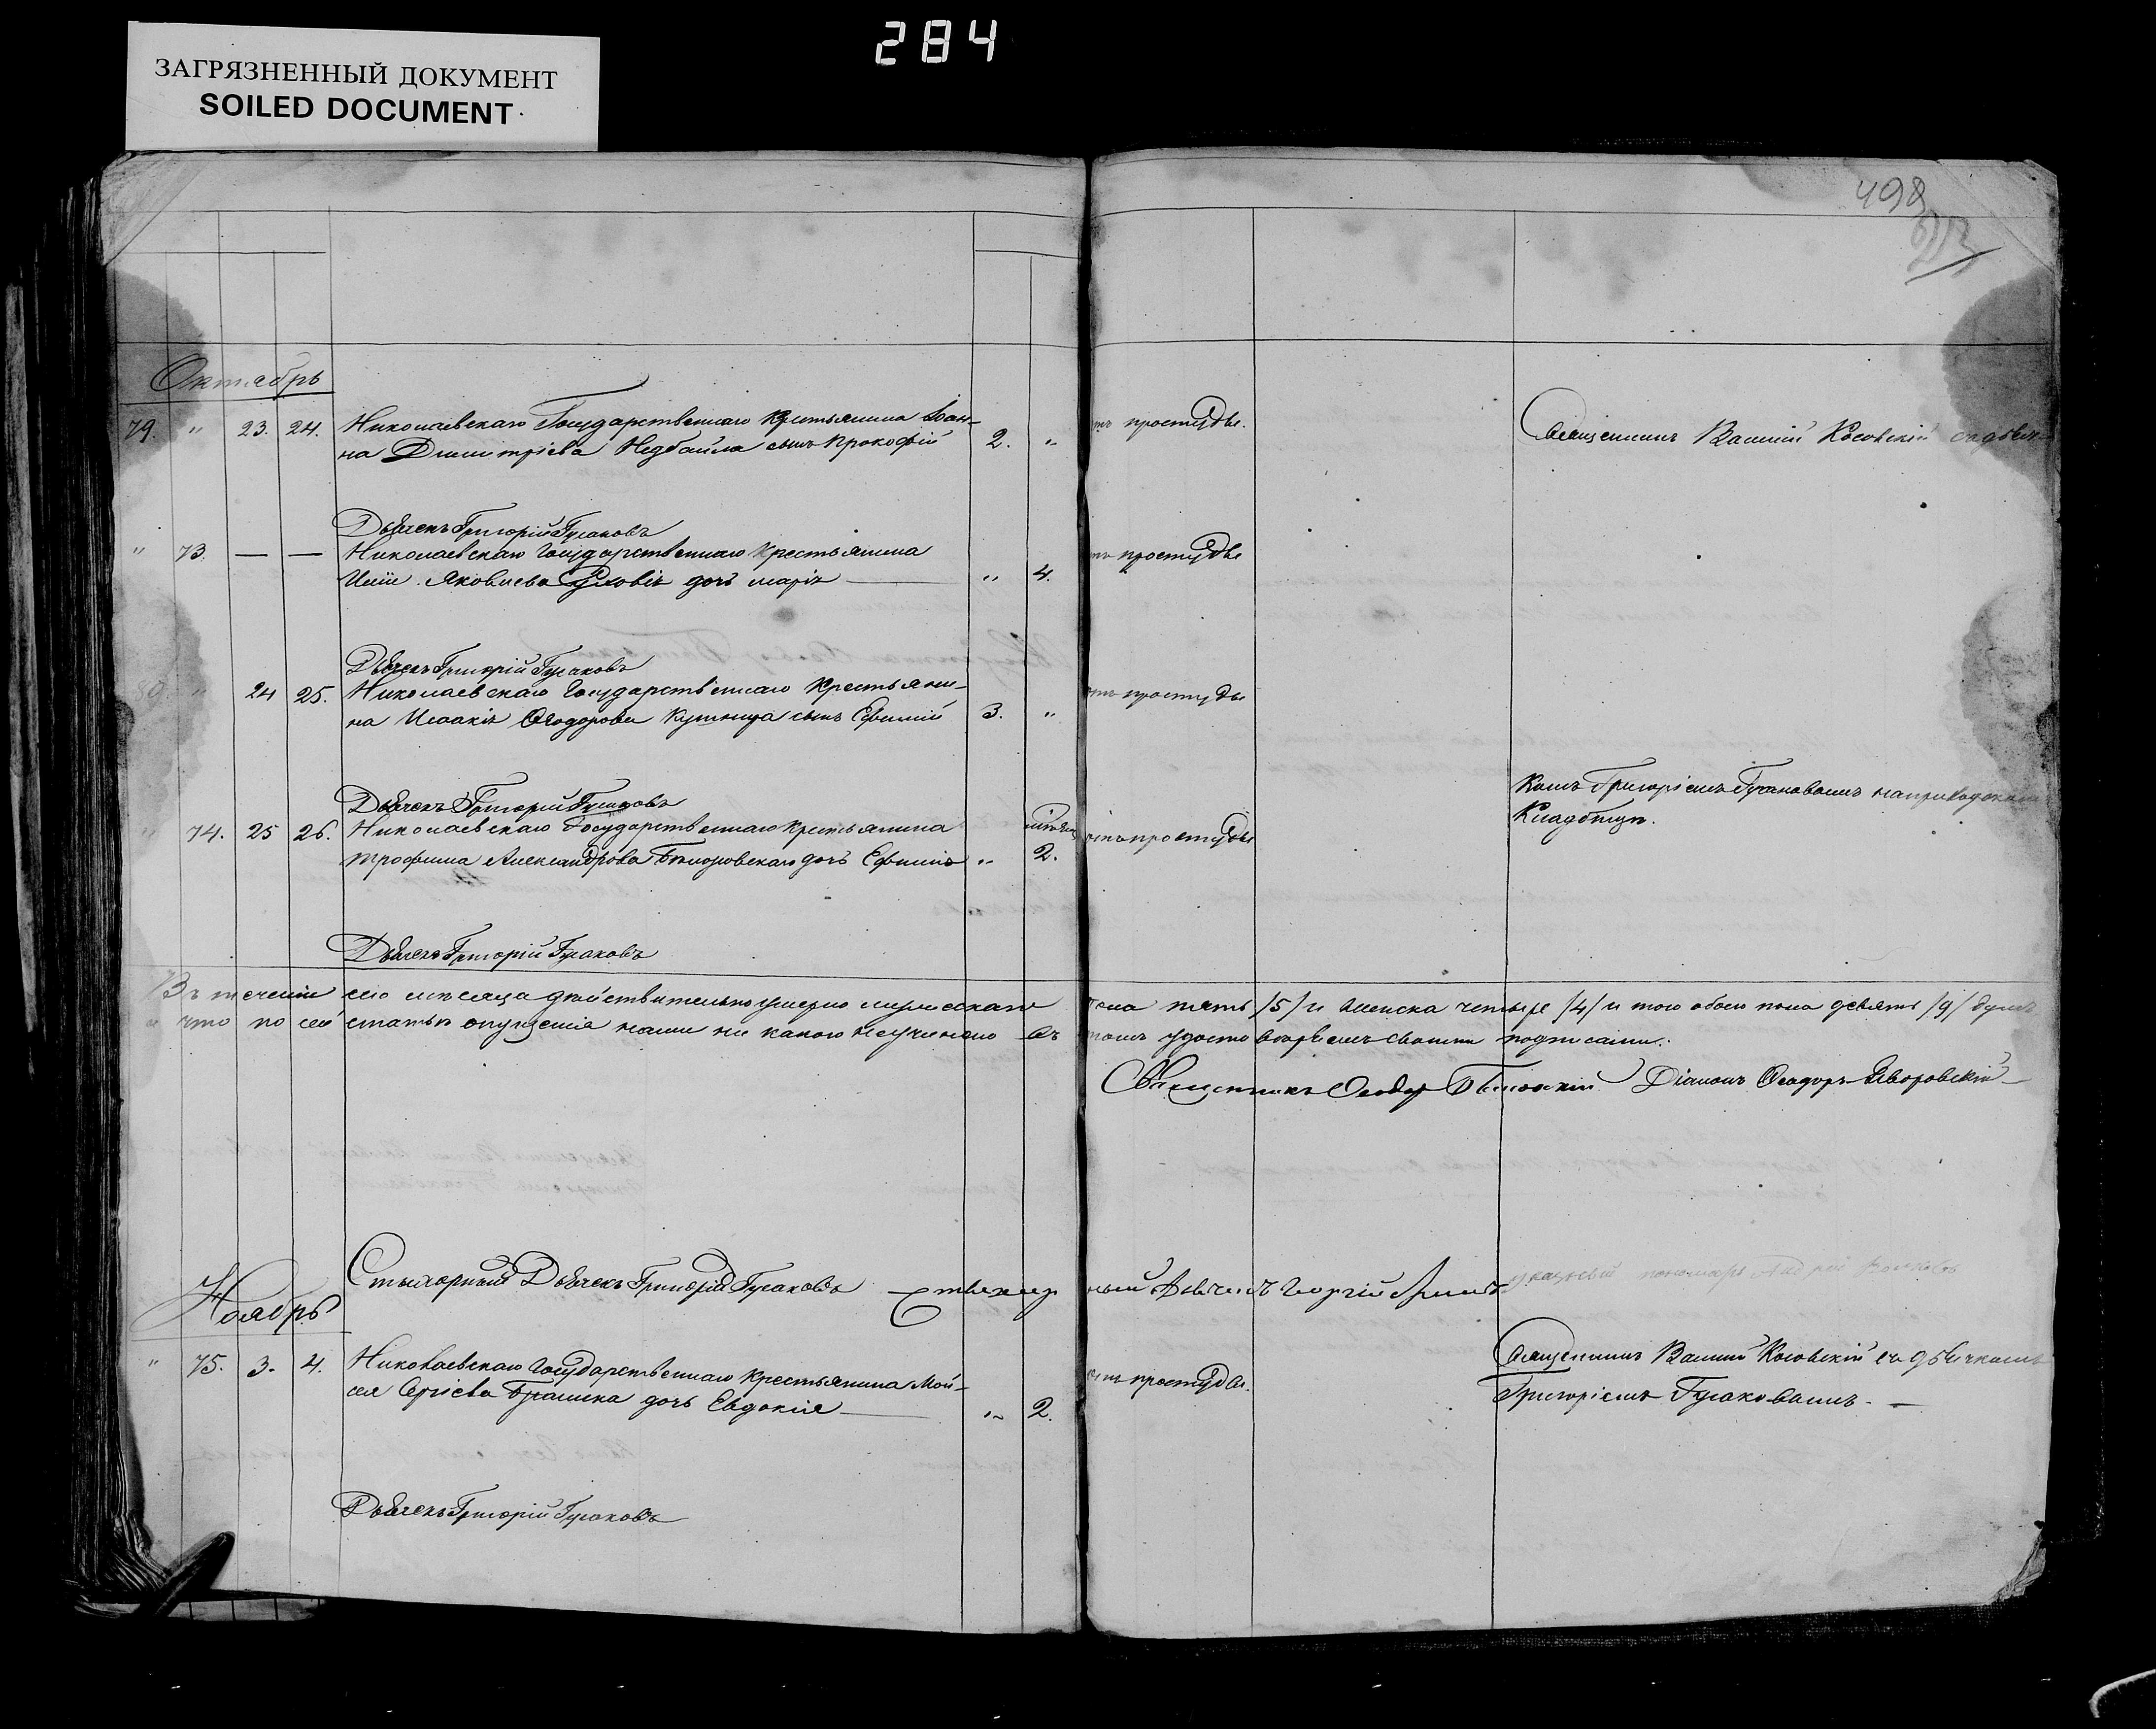 284
ЗАГРЯЗНЕННЫЙ ДОКУМЕНТ
SOILED DOCUMENT
498
Октябрь
79. " 23. 24. Николаевскаго Государственнаго крестьянина Іоан-
на Димитріева Недбайла сынъ Прокофій 2. " отъ простуды. Священникъ Косовскій съ дьяч-
Дьячекъ Григорій Гусаковъ
" 73. — — Николаевскаго государственнаго крестьянина
Иліи Яковлева дочь Марія " 4. отъ простуды
Дьячекъ Григорій Гусаковъ
80. " 24 25. Николаевскаго государственнаго крестьяни-
на Исаакія Ѳеодорова сынъ Ефимій 3. " отъ простуды
Дьячекъ Григорій Гусаковъ
комъ Григоріемъ Гусаковымъ на приходскомъ
Кладбищѣ.
" 74. 25 26. Николаевскаго Государственнаго крестьянина
Трофима Александрова дочь Ефимія " 2. отъ простуды
Дьячекъ Григорій Гусаковъ
Въ теченіи сего мѣсяца дѣйствительно умерло мужескаго пола пять /5/ и женска четыре /4/ и того обоего пола девять /9/ душъ
а что по сей статьѣ опущенія нами ни какого неучинено въ томъ удостовѣряемъ своими подписами.
Священникъ Ѳеодоръ Діаконъ Ѳеодоръ Яворовскій
Стихарный Дьячекъ Григорій Гусаковъ Стихарный Дьячекъ Георгій пономарь
Ноябрь
" 75. 3. 4. Николаевскаго государственнаго крестьянина Мои-
сея Сергіева дочь Евдокія " 2. отъ простуды. Священникъ Косовскій съ дьячкомъ
Григоріемъ Гусаковымъ.
Дьячекъ Григорій Гусаковъ